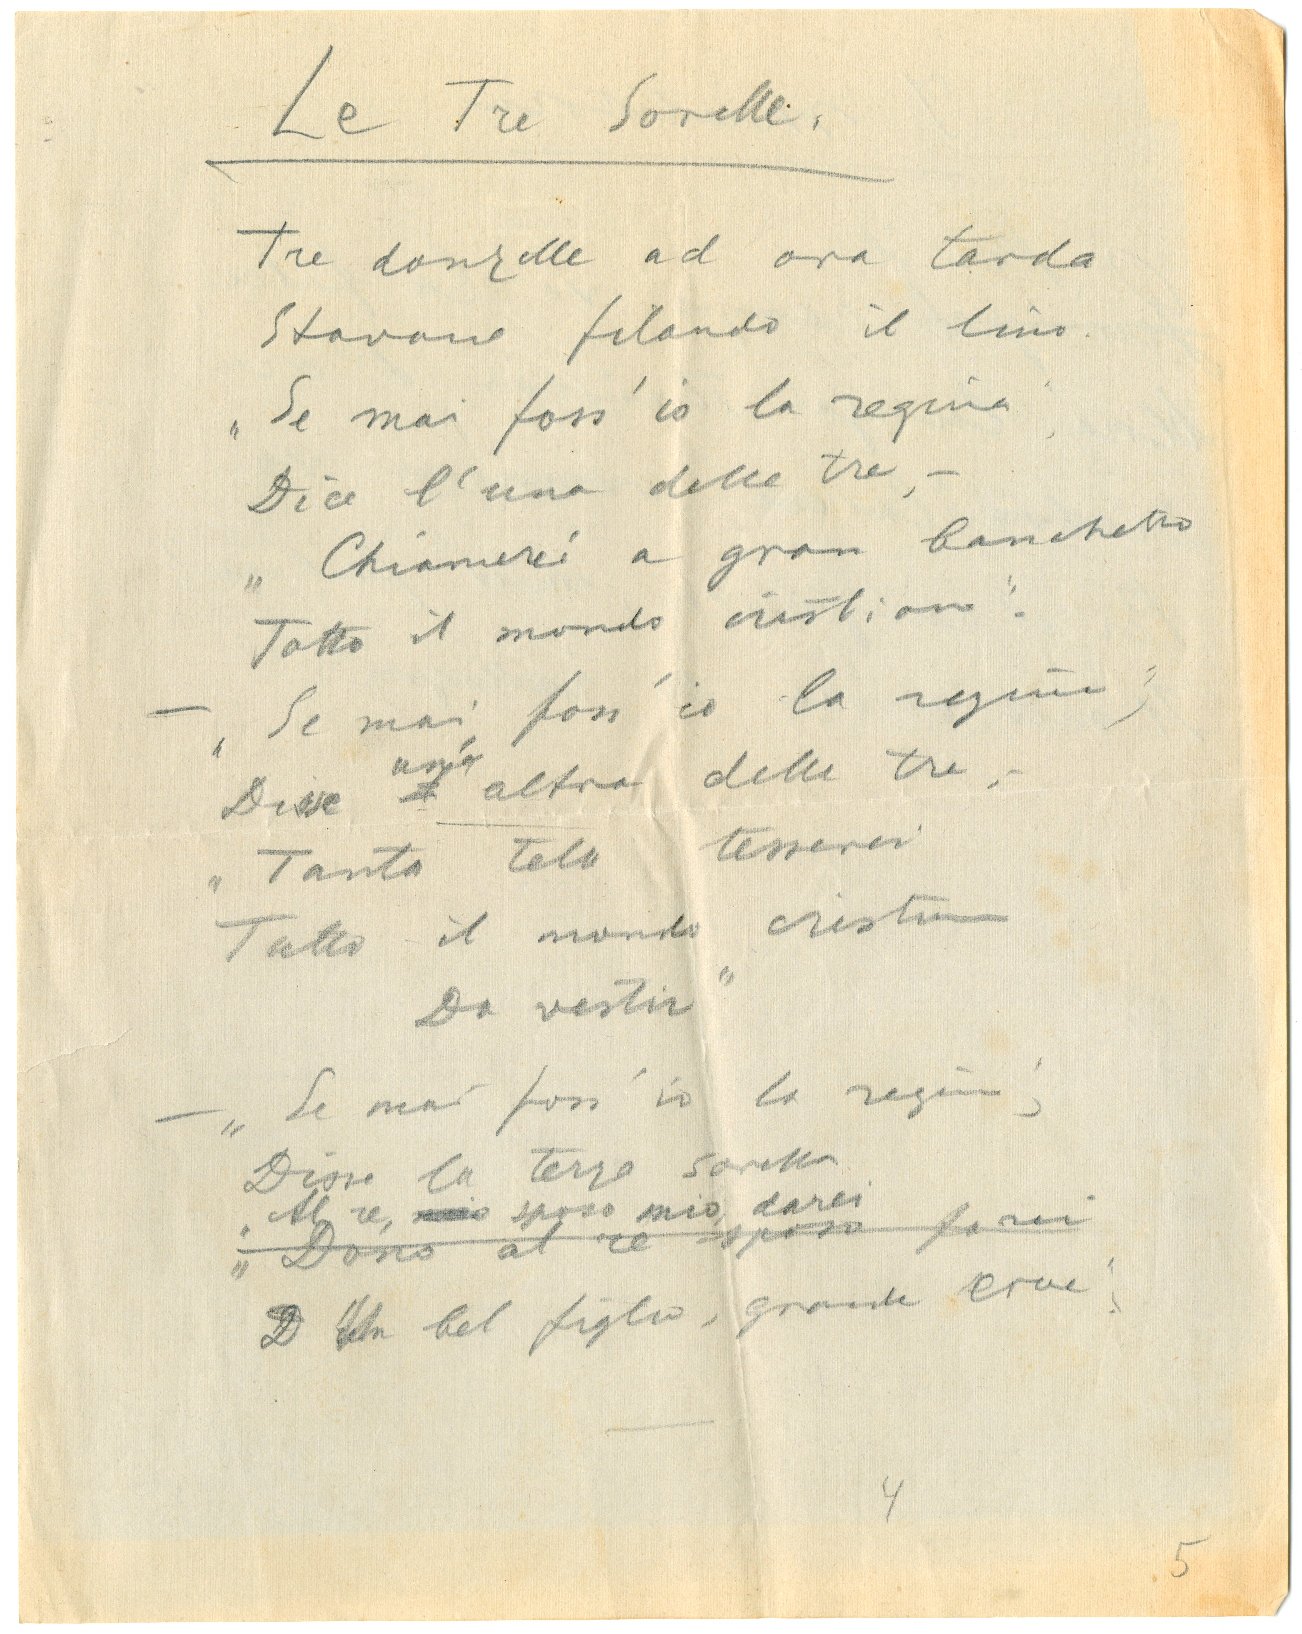 Le Tre Sorelle.
Tre donzelle ad ora tarda
Stavano filando il lino.
„Se mai foss' io la regina"
Dice l'una delle tre, –
„Chiamerei a gran banchetto
Tutto il mondo cristiano".
— „Se mai foss' io la regina",
Disse un'altra delle tre, –
„Tanta tela tesserei
Tutto il mondo cristian
Da vestir"
— „Se mai foss' io la regina",
Disse la terza sorella
„Al re, mio sposo mio, darei
„Dono al re sposo farei
D Un bel figlio, grande eroe".
4
5